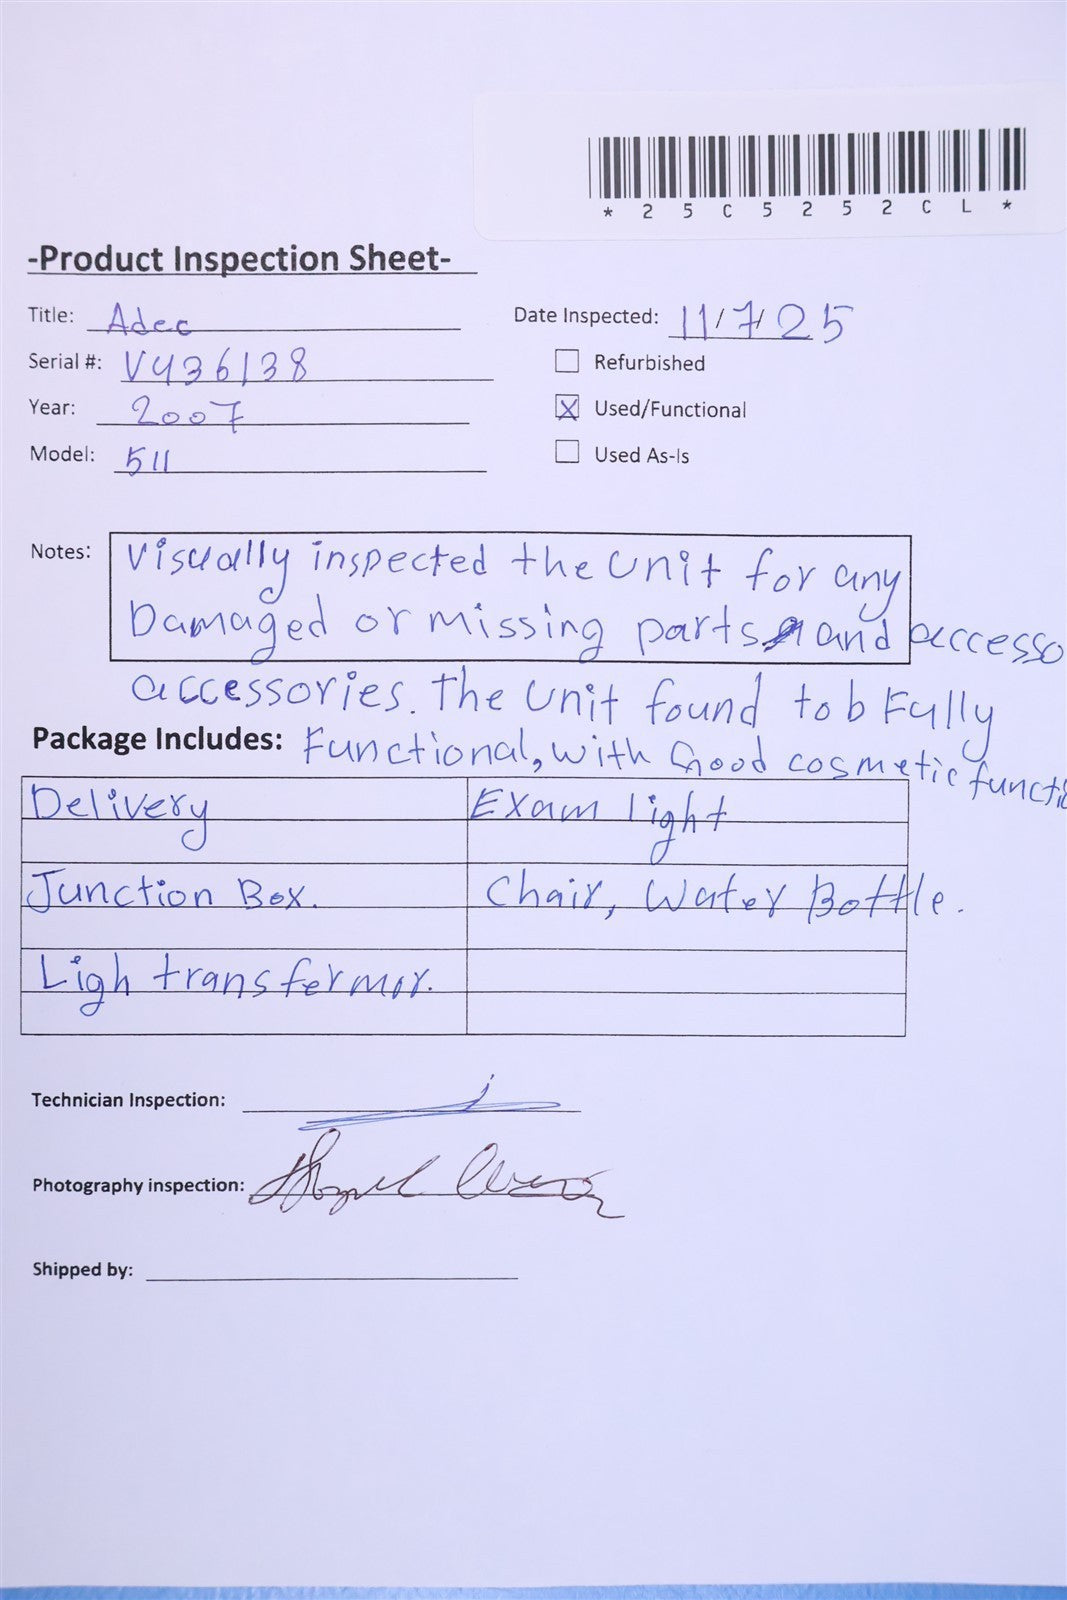 * 2 5 C 5 2 5 2 C L *
-Product Inspection Sheet-
Title: Adec
Date Inspected: 11/7/25
Serial #: V436138
Refurbished
Year: 2007
X Used/Functional
Model: 511
Used As-Is
Notes: Visually inspected the unit for any
Damaged or missing parts and accesso
accessories. The unit found to b Fully
Package Includes: Functional, with Good cosmetic functi
Delivery Exam light
Junction Box. Chair, Water Bottle.
Ligh transfermor.
Technician Inspection:
Photography inspection:
Shipped by: